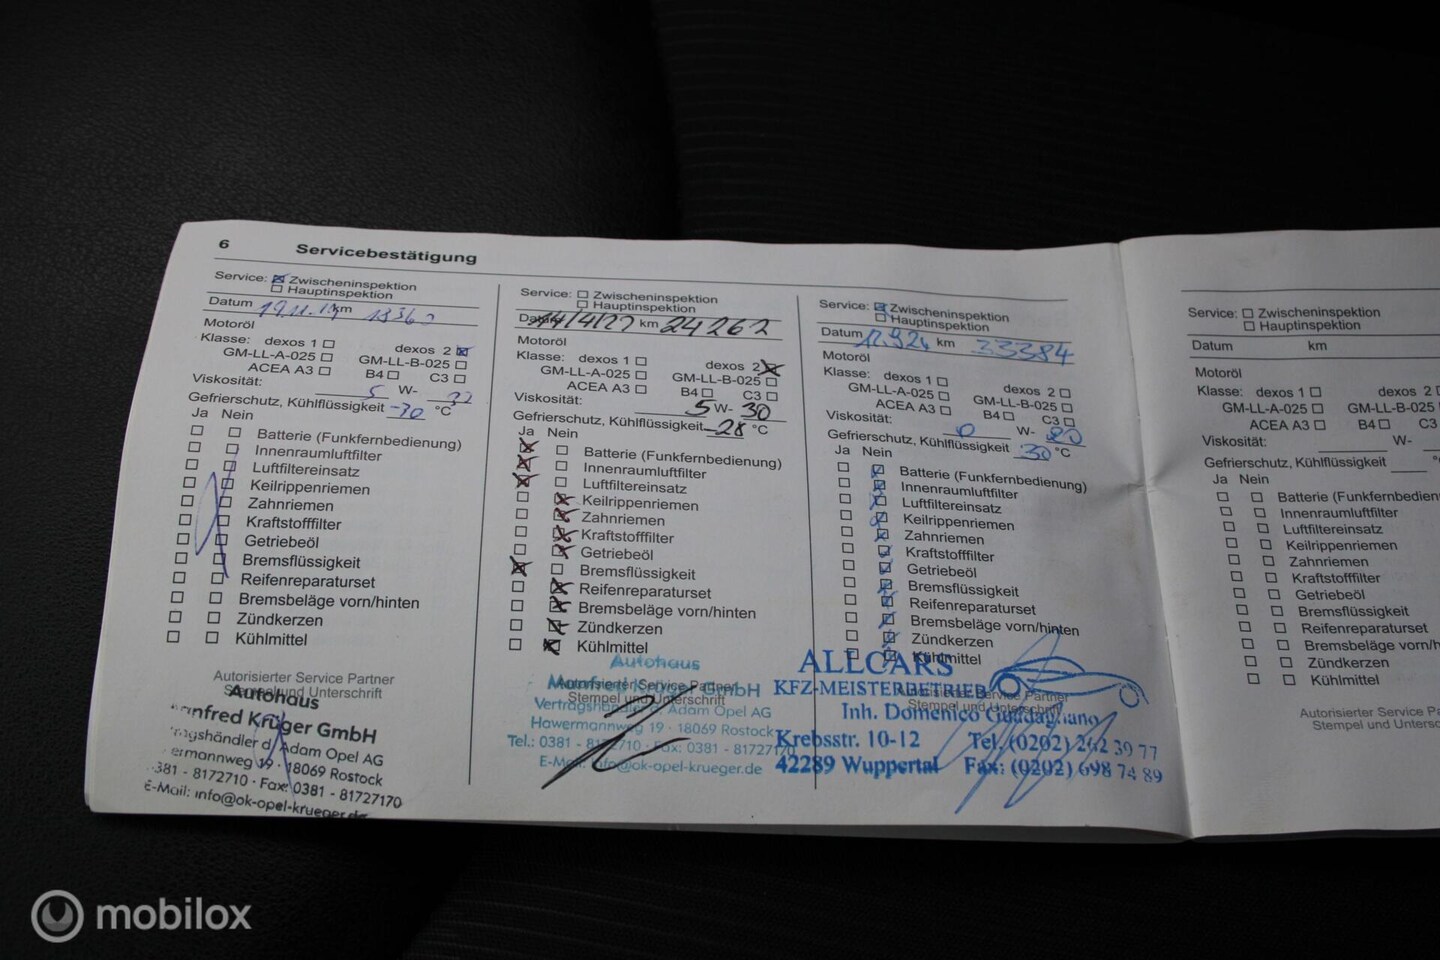 6 Servicebestätigung
Service: Zwischeninspektion
Hauptinspektion
Datum km
Motoröl
Klasse: dexos 1 dexos 2
GM-LL-A-025 GM-LL-B-025
ACEA A3 B4 C3
Viskosität: 5 W-
Gefrierschutz, Kühlflüssigkeit -30 °C
Ja Nein
Batterie (Funkfernbedienung)
Innenraumluftfilter
Luftfiltereinsatz
Keilrippenriemen
Zahnriemen
Kraftstofffilter
Getriebeöl
Bremsflüssigkeit
Reifenreparaturset
Bremsbeläge vorn/hinten
Zündkerzen
Kühlmittel
Autorisierter Service Partner
Stempel und Unterschrift
Autohaus
Manfred Krüger GmbH
Adam Opel AG
19 · 18069 Rostock
381 - 8172710 · Fax: 0381 - 81727170
E-Mail: info@ok-opel-krueger.de
Service: Zwischeninspektion
Hauptinspektion
Datum km 24262
Motoröl
Klasse: dexos 1 dexos 2
GM-LL-A-025 GM-LL-B-025
ACEA A3 B4 C3
Viskosität: 5 W- 30
Gefrierschutz, Kühlflüssigkeit -28 °C
Ja Nein
Batterie (Funkfernbedienung)
Innenraumluftfilter
Luftfiltereinsatz
Keilrippenriemen
Zahnriemen
Kraftstofffilter
Getriebeöl
Bremsflüssigkeit
Reifenreparaturset
Bremsbeläge vorn/hinten
Zündkerzen
Kühlmittel
Autorisierter Service Partner
Stempel und Unterschrift
Autohaus
Manfred Krüger GmbH
Vertragshändler d. Adam Opel AG
Hawermannweg 19 · 18069 Rostock
Tel.: 0381 - 8172710 · Fax: 0381 - 81727170
E-Mail: info@ok-opel-krueger.de
Service: Zwischeninspektion
Hauptinspektion
Datum 12.9.24 km 33384
Motoröl
Klasse: dexos 1 dexos 2
GM-LL-A-025 GM-LL-B-025
ACEA A3 B4 C3
Viskosität: 0 W- 20
Gefrierschutz, Kühlflüssigkeit -30 °C
Ja Nein
Batterie (Funkfernbedienung)
Innenraumluftfilter
Luftfiltereinsatz
Keilrippenriemen
Zahnriemen
Kraftstofffilter
Getriebeöl
Bremsflüssigkeit
Reifenreparaturset
Bremsbeläge vorn/hinten
Zündkerzen
Kühlmittel
Autorisierter Service Partner
Stempel und Unterschrift
ALLCARS
KFZ-MEISTERBETRIEB
Inh. Domenico Guadagliano
Krebsstr. 10-12 Tel. (0202) 262 39 77
42289 Wuppertal Fax: (0202) 698 74 89
Service: Zwischeninspektion
Hauptinspektion
Datum km
Motoröl
Klasse: dexos 1 dexos 2
GM-LL-A-025 GM-LL-B-025
ACEA A3 B4 C3
Viskosität: W-
Gefrierschutz, Kühlflüssigkeit
Ja Nein
Batterie (Funkfernbedien
Innenraumluftfilter
Luftfiltereinsatz
Keilrippenriemen
Zahnriemen
Kraftstofffilter
Getriebeöl
Bremsflüssigkeit
Reifenreparaturset
Bremsbeläge vorn/h
Zündkerzen
Kühlmittel
Autorisierter Service Pa
Stempel und Untersc
mobilox